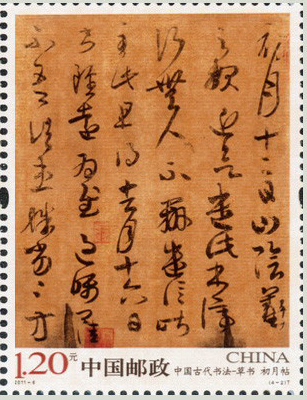 初月十二日山陰羲
之報近欲遣此書停
行無人不辦遣信昨
至此且得去月十六日
書雖遠為慰過囑卿佳
不吾諸患殊劣〻方
1.20元 中国邮政 CHINA
中国古代书法-草书 初月帖
2011-6 (4-2)T